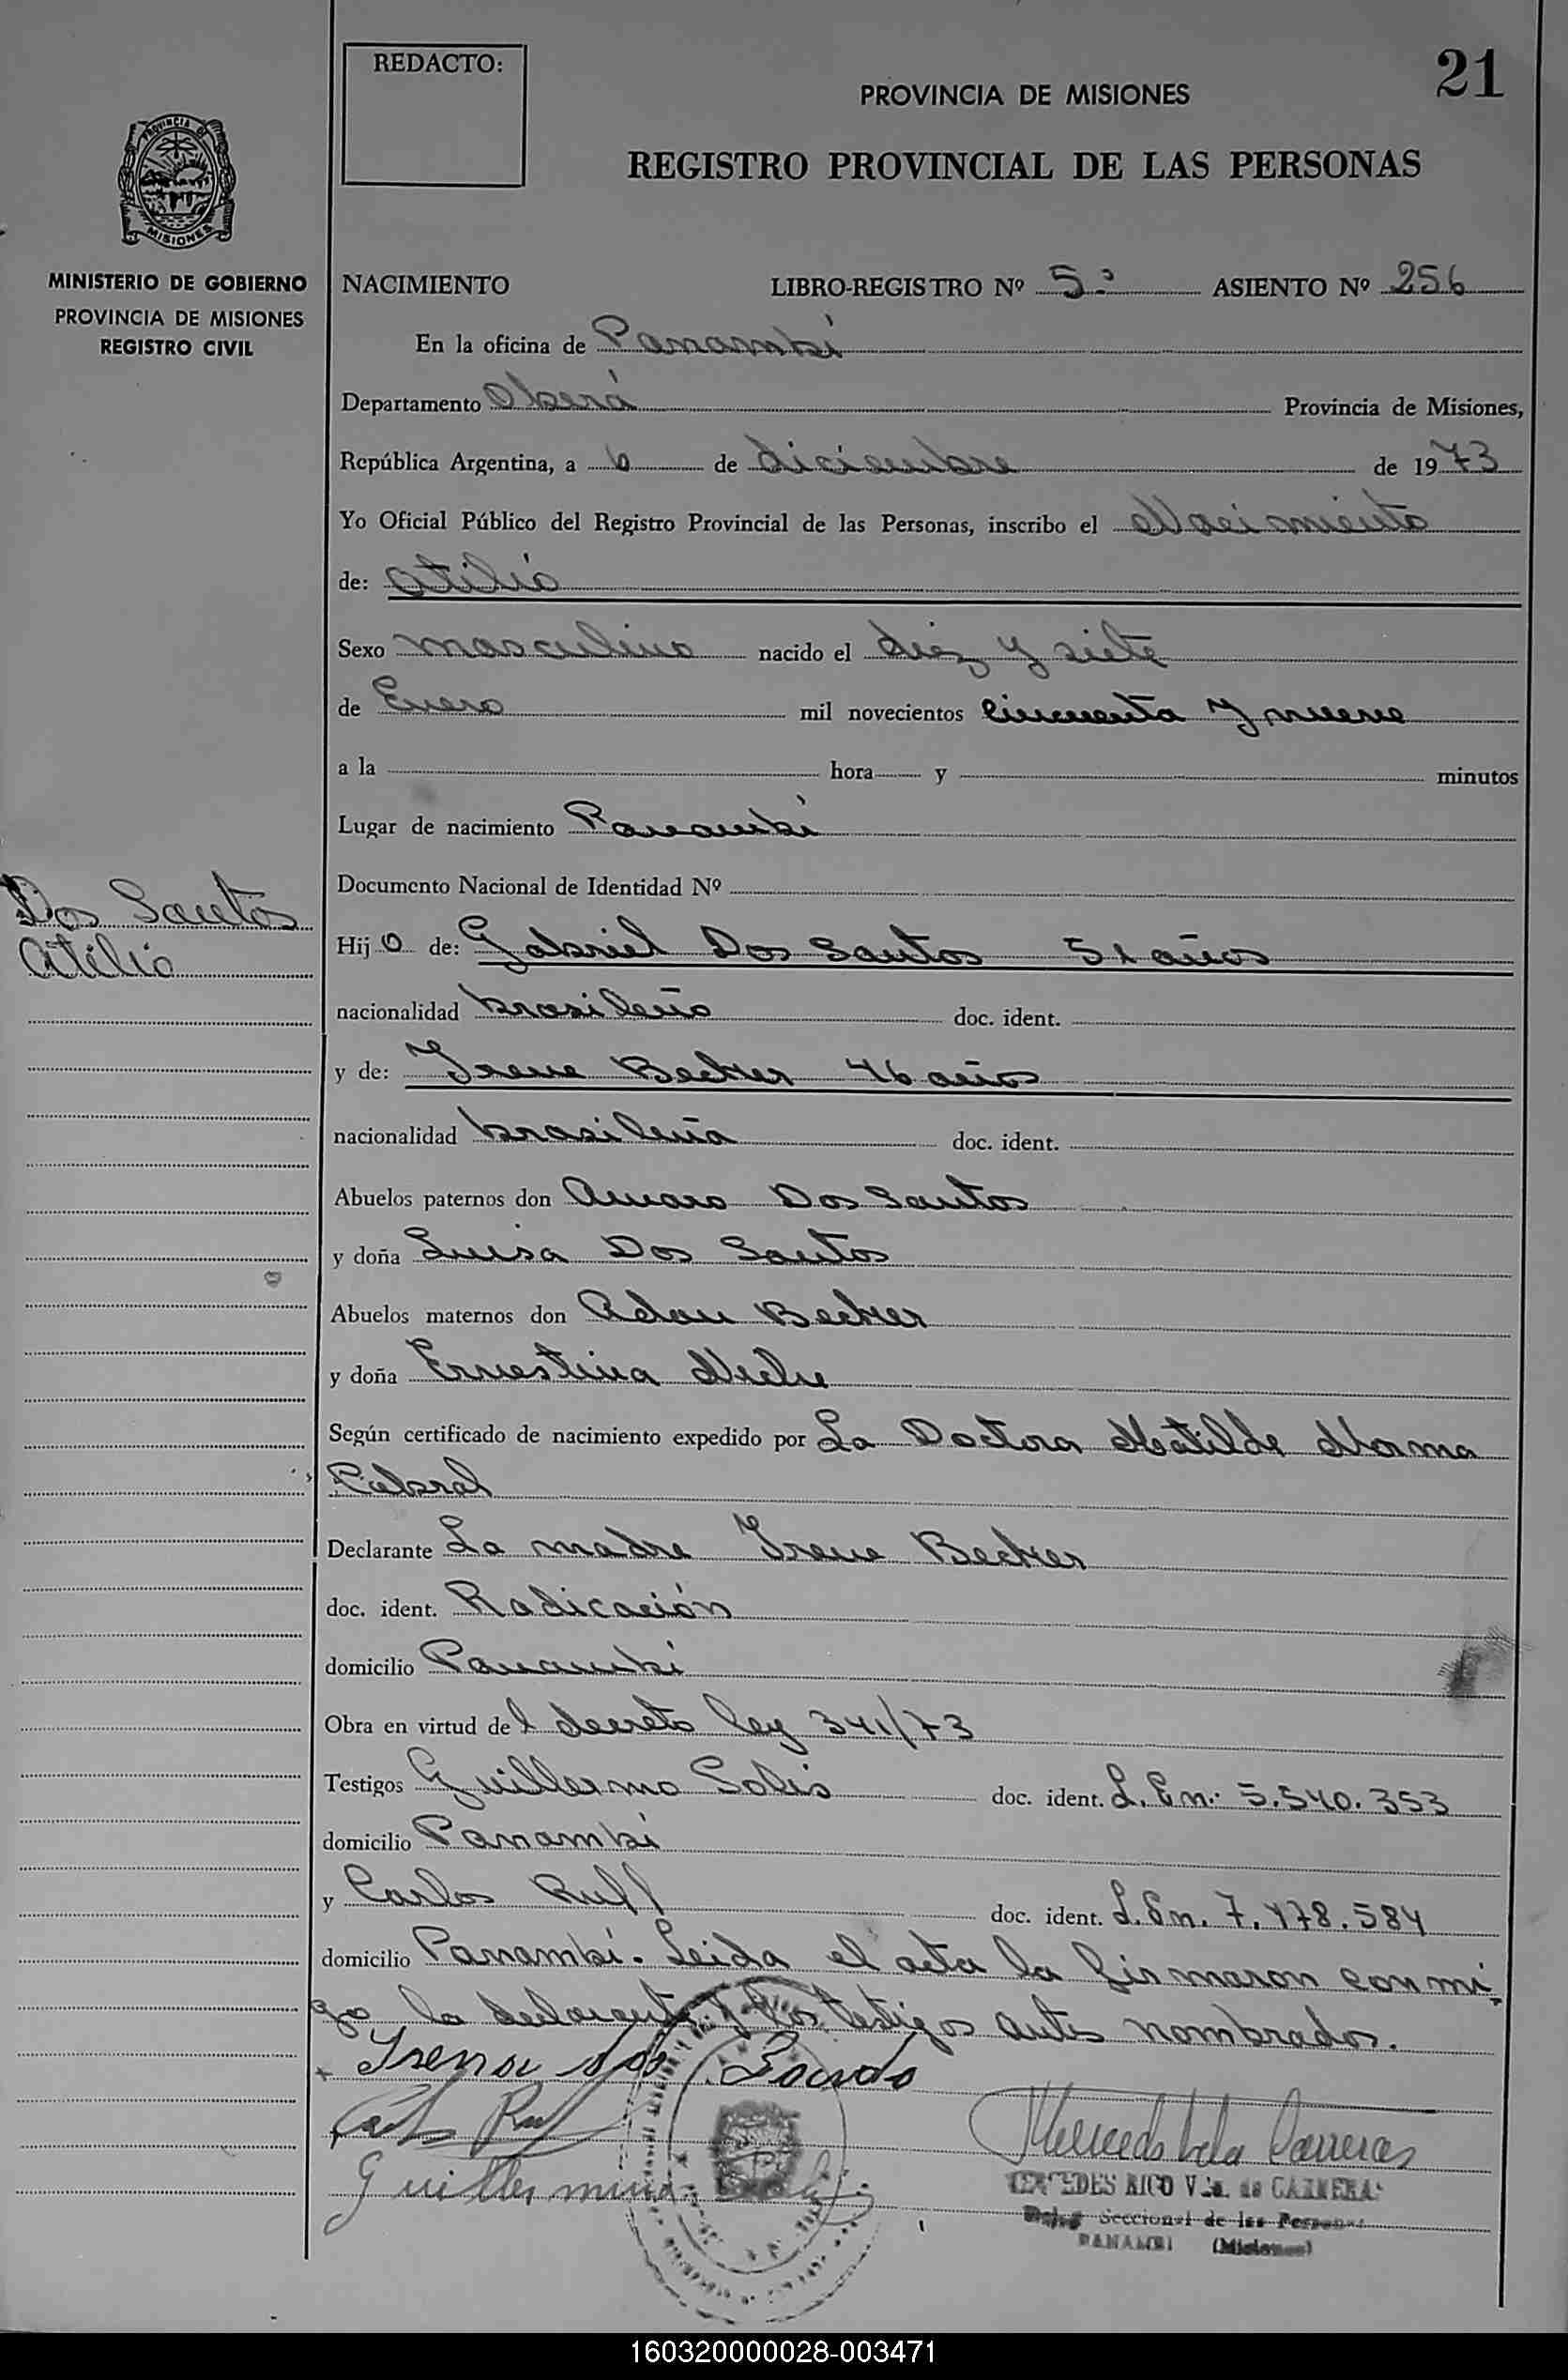 REDACTO:
21
PROVINCIA DE MISIONES
REGISTRO PROVINCIAL DE LAS PERSONAS
PROVINCIA DE
MISIONES
MINISTERIO DE GOBIERNO
PROVINCIA DE MISIONES
REGISTRO CIVIL
NACIMIENTO LIBRO-REGISTRO Nº 5º ASIENTO Nº 256
En la oficina de Panambí
Departamento Oberá Provincia de Misiones,
República Argentina, a 6 de diciembre de 1973
Yo Oficial Público del Registro Provincial de las Personas, inscribo el Nacimiento
de: Atilio
Sexo masculino nacido el diez y siete
de Enero mil novecientos cincuenta y nueve
a la hora y minutos
Lugar de nacimiento Panambí
Documento Nacional de Identidad Nº
Dos Santos
Atilio
Hijo de: Gabriel Dos Santos 51 años
nacionalidad brasileño doc. ident.
y de: Irene Becker 46 años
nacionalidad brasileña doc. ident.
Abuelos paternos don Amaro Dos Santos
y doña Luisa Dos Santos
Abuelos maternos don Adan Becker
y doña Ernestina
Según certificado de nacimiento expedido por La Doctora Matilde Norma
Cabral
Declarante La madre Irene Becker
doc. ident. Radicación
domicilio Panambí
Obra en virtud del decreto ley 341/73
Testigos Guillermo Solis doc. ident. L. En.: 5.540.353
domicilio Panambí
y Carlos Ruff doc. ident. L. En. 7.478.584
domicilio Panambí. Leida el acta la firmaron conmi
go la declarante y los testigos antes nombrados.
Irena dos Santos
MERCEDES RICO Vda. de CARRERAS
Seccional de las Personas
PANAMBI (Misiones)
160320000028-003471